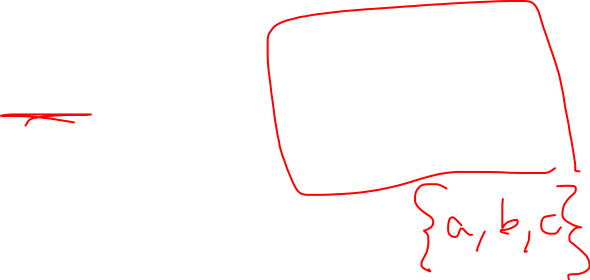 {a, b, c}